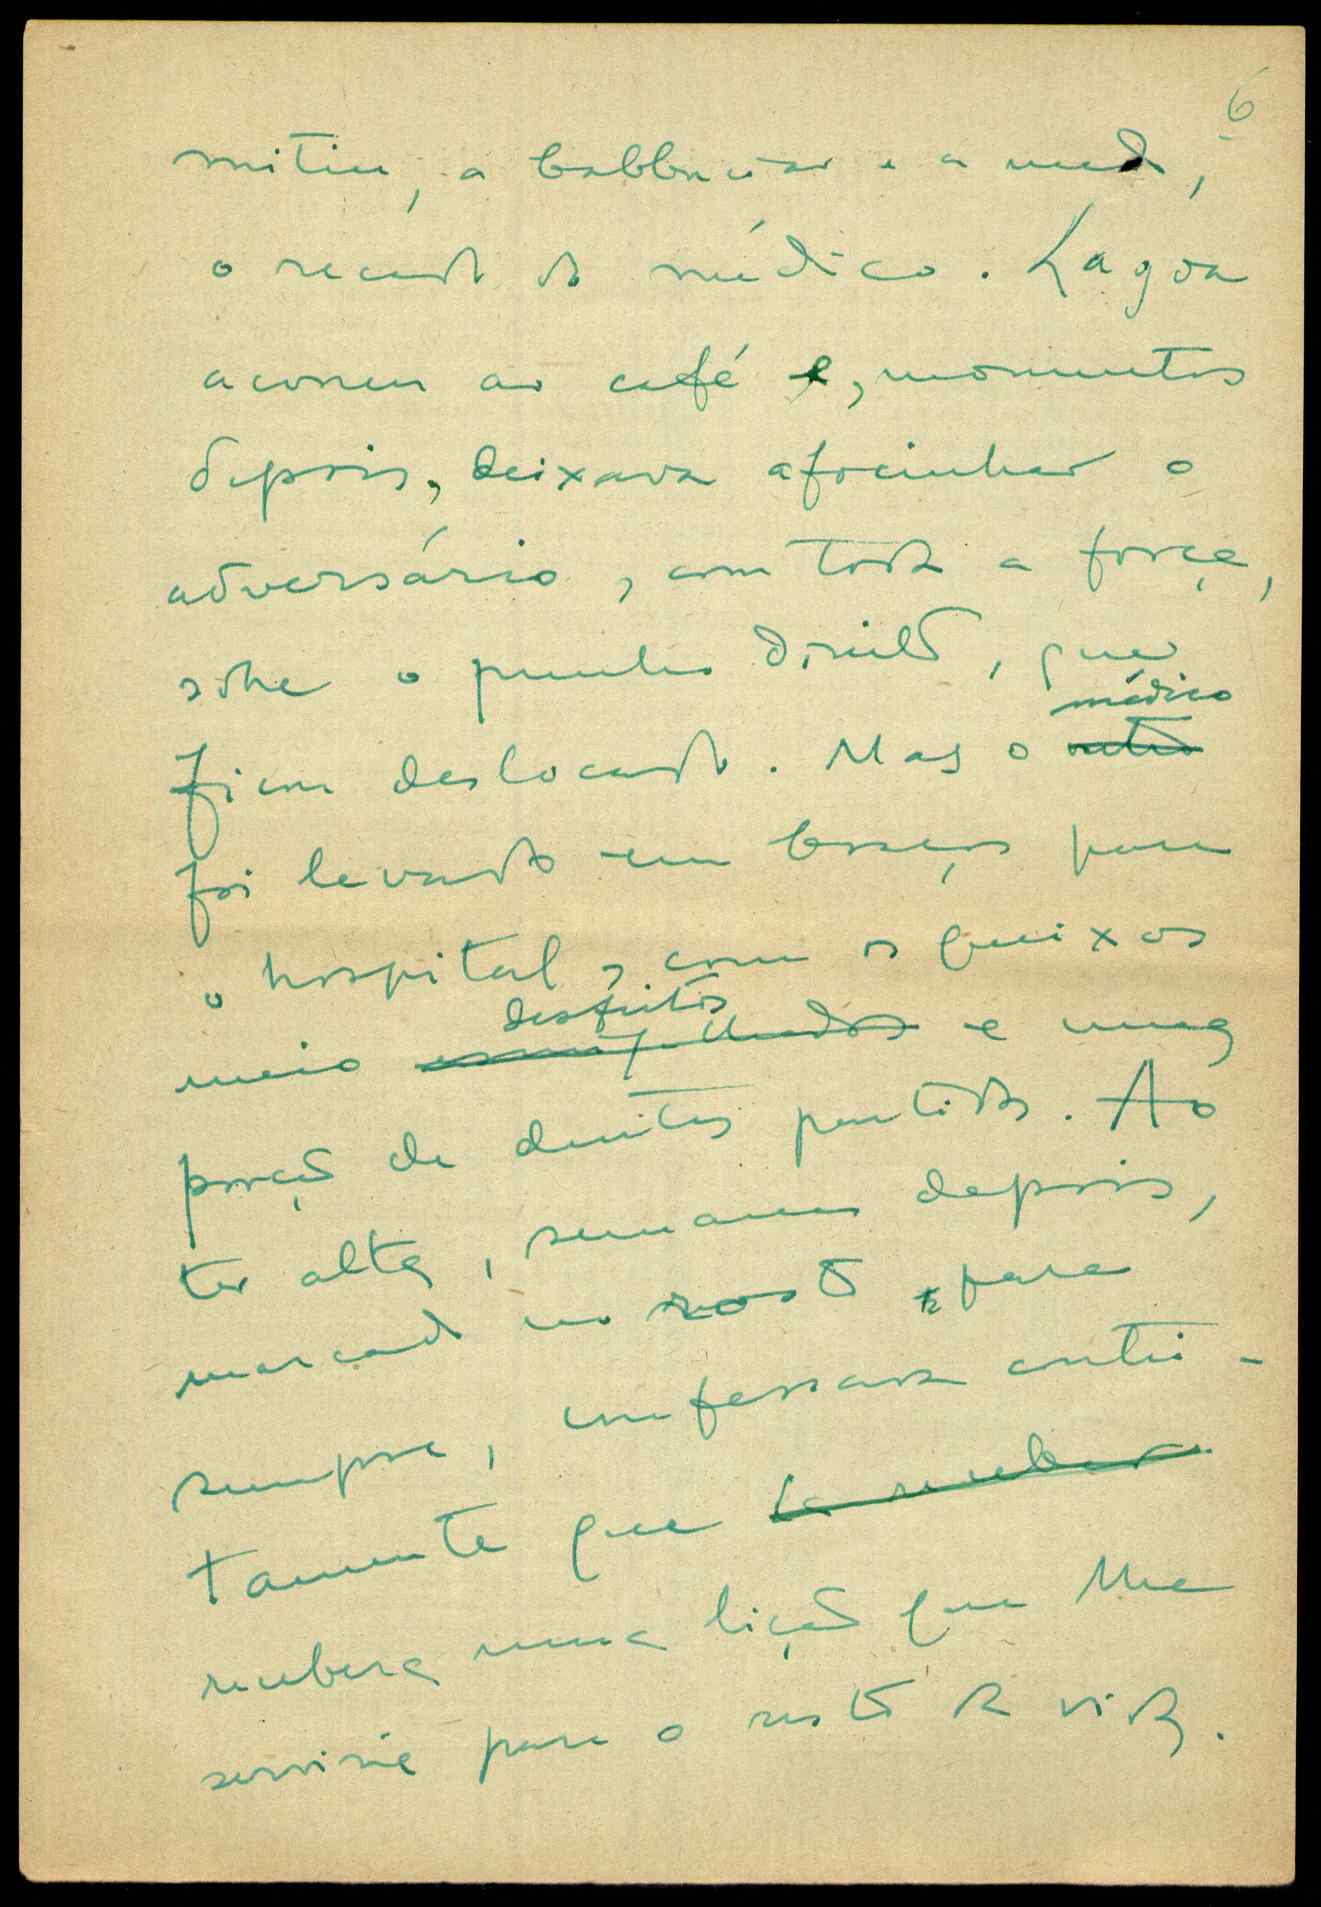 6
mitiu, a balbuciar e a medo,
o recado do médico. Lagoa
acorreu ao café e, momentos
depois, deixava afocinhar o
adversário, com toda a força,
sobre o punho direito, que
ficou deslocado. Mas o médico
foi levado em braços para
o hospital, com os queixos
meio desfeitos e uma
porção de dentes partidos. Ao
ter alta, semanas depois,
marcado no rosto para
sempre, confessava contri-
tamente que la receber
recebera uma lição que lhe
serviria para o resto da vida.